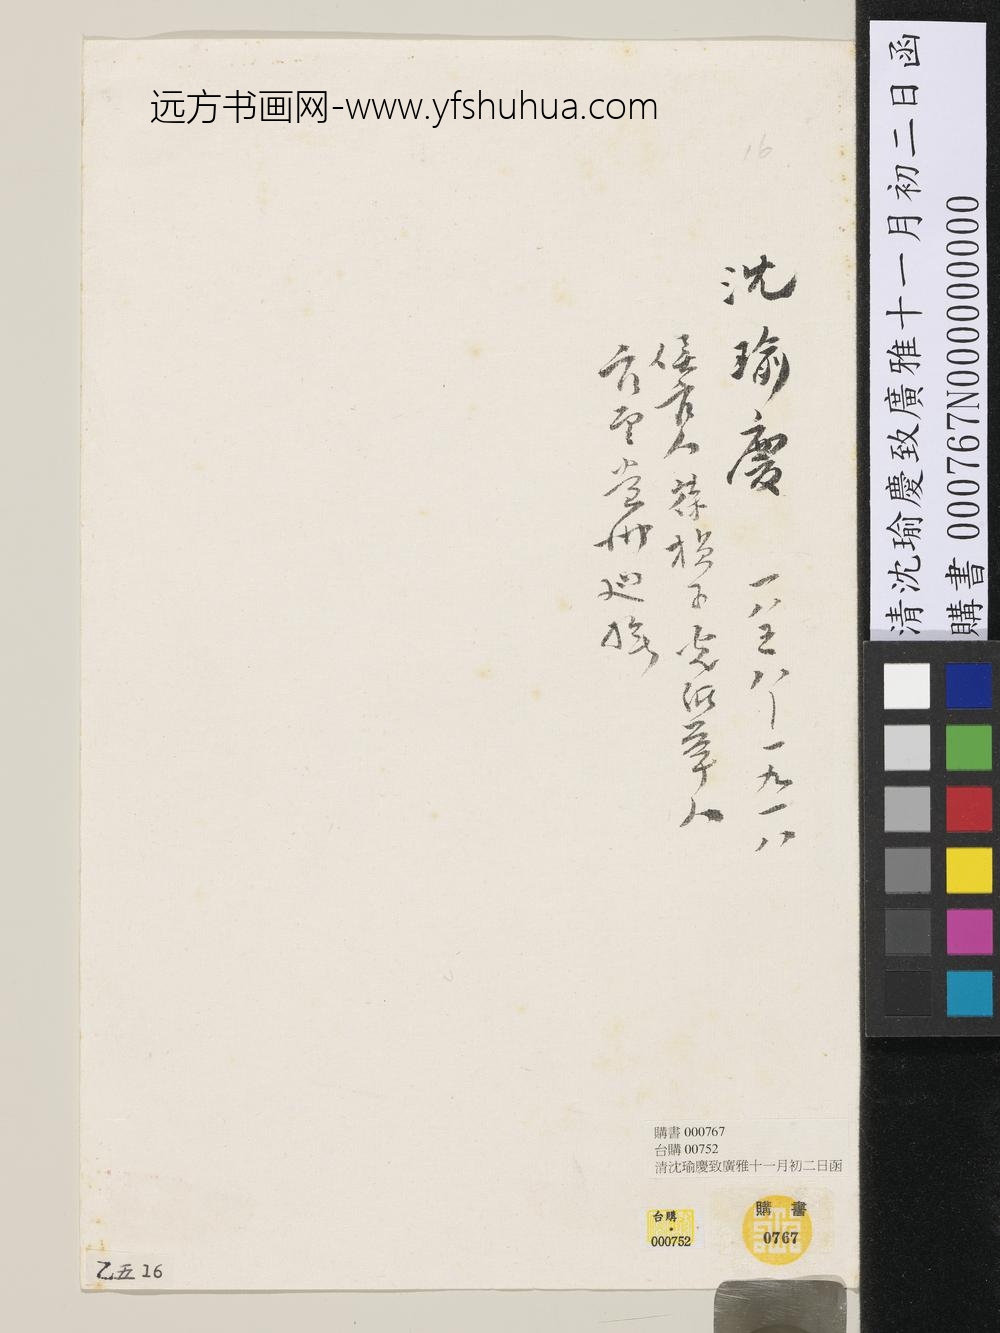 远方书画网-www.yfshuhua.com
16
沈瑜慶 一八五八—一九一八
侯官人 葆楨子 光緒舉人
官至貴州巡撫
清沈瑜慶致廣雅十一月初二日函
購書 000767N000000000
購書 000767
台購 00752
清沈瑜慶致廣雅十一月初二日函
台購
000752
購 書
0767
乙五16